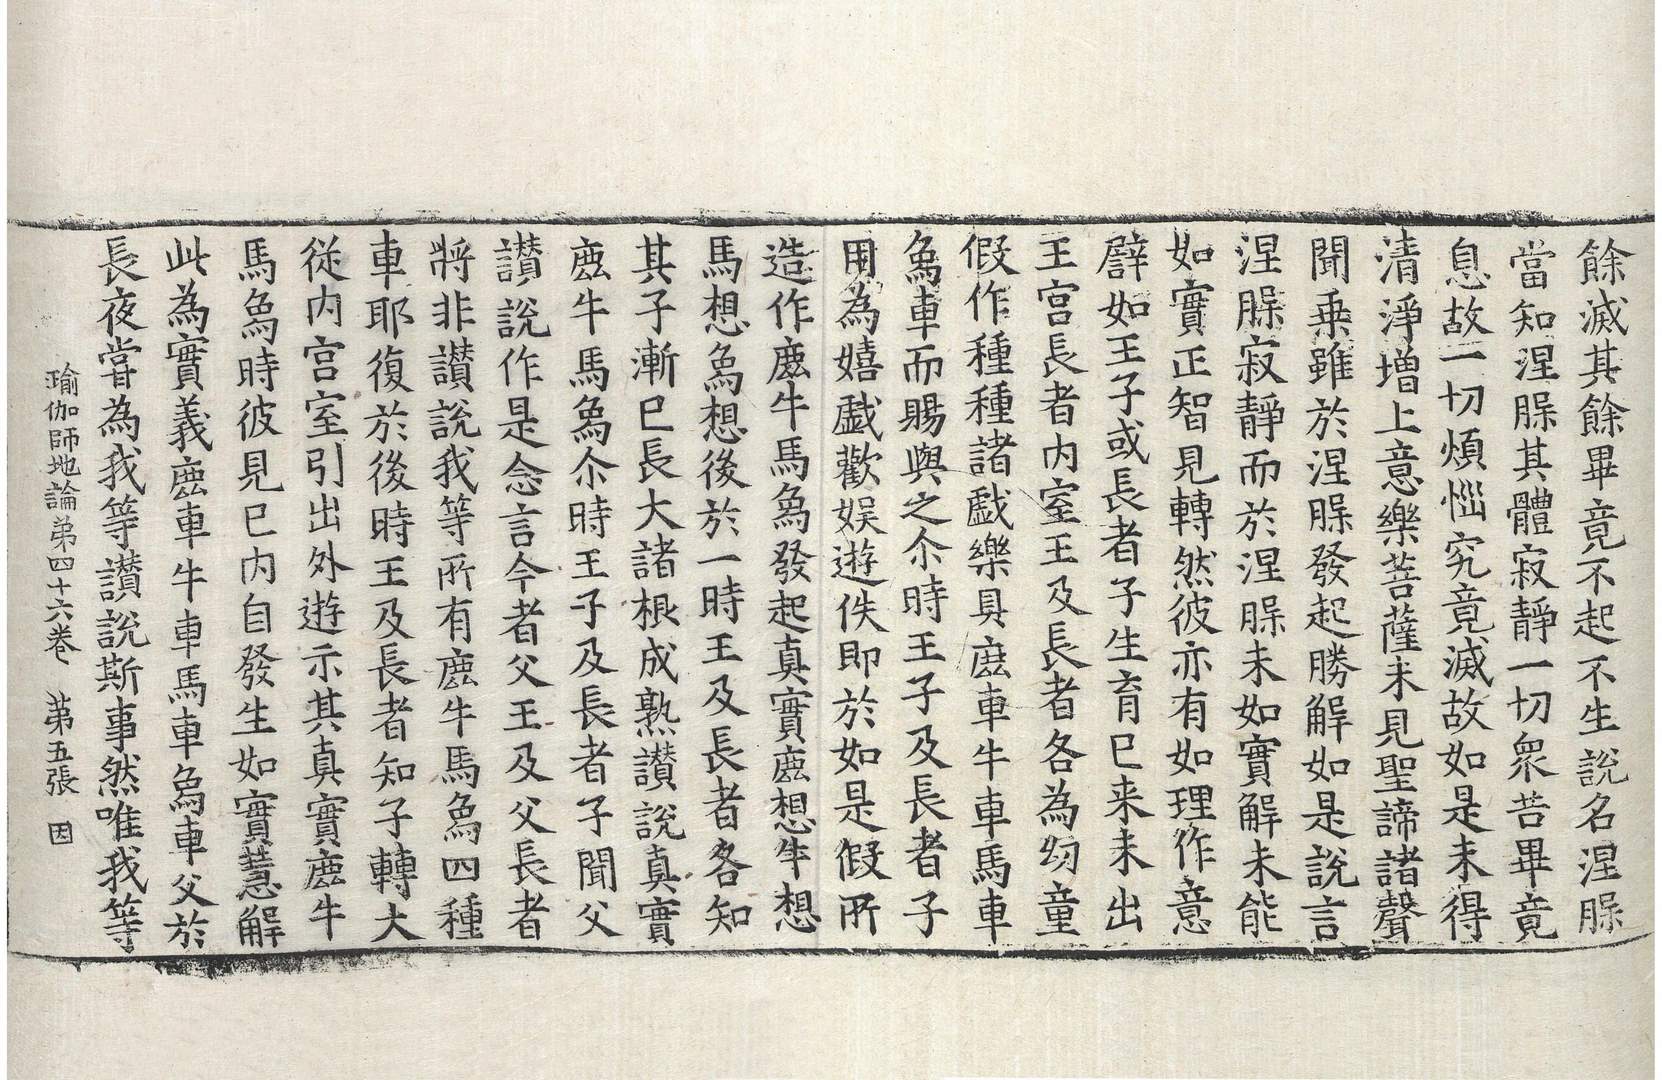 餘滅其餘畢竟不起不生說名涅膎
當知涅膎其體寂靜一切衆苦畢竟
息故一切煩惱究竟滅故如是未得
清淨增上意樂菩薩未見聖諦諸聲
聞乗雖於涅膎發起勝解如是說言
涅膎寂靜而於涅膎未如實解未能
如實正智見轉然彼亦有如理作意
譬如王子或長者子生育已来未出
王宫長者内室王及長者各為幼童
假作種種諸戱樂具鹿車牛車馬車
象車而賜與之尒時王子及長者子
用為嬉戱歡娱遊佚即於如是假所
造作鹿牛馬象發起真實鹿想牛想
馬想象想後於一時王及長者各知
其子漸已長大諸根成熟讃說真實
鹿牛馬象尒時王子及長者子聞父
讃說作是念言今者父王及父長者
將非讃說我等所有鹿牛馬象四種
車耶復於後時王及長者知子轉大
從内宫室引出外遊示其真實鹿牛
馬象時彼見已内自發生如實慧解
此為實義鹿車牛車馬車象車父於
長夜甞為我等讃說斯事然唯我等
瑜伽師地論第四十六卷　第五張　因